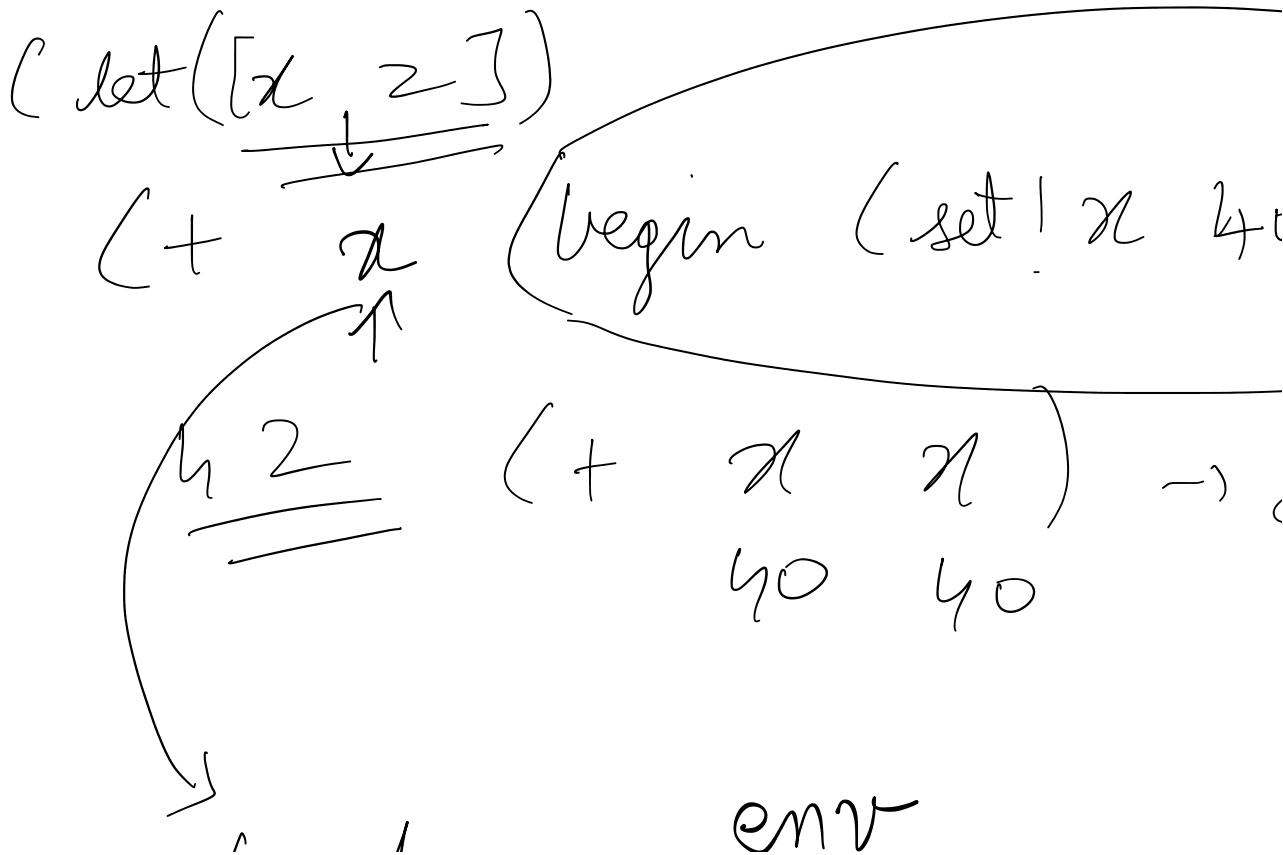 (let([x 2])
(+ x (begin (set! x 40
42 (+ x x) →
40 40
env